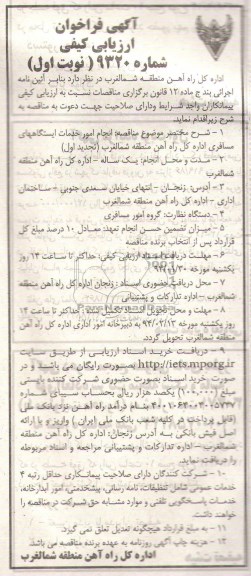 آگهی فراخوان
ارزیابی کیفی
شماره ۹۳۲۰ (نوبت اول)
اداره کل راه آهن منطقه شمالغرب در نظر دارد بنابر آئین نامه
اجرائی بند ج ماده ۱۲ قانون برگزاری مناقصات نسبت به ارزیابی کیفی
پیمانکاران واجد شرایط و دارای صلاحیت جهت دعوت به مناقصه به
شرح زیر اقدام نماید.
۱ – شرح مختصر موضوع مناقصه: انجام امور خدمات ایستگاههای
مسافری اداره کل راه آهن منطقه شمالغرب (تجدید اول)
۲ – مدت و محل انجام: یک ساله – اداره کل راه آهن منطقه
شمالغرب
۳ – آدرس: زنجان – انتهای خیابان سعدی جنوبی – ساختمان
اداری – اداره کل راه آهن منطقه شمالغرب
۴ – دستگاه نظارت: گروه امور مسافری
۵ – میزان تضمین حسن انجام تعهد: معادل ۱۰ درصد مبلغ کل
قرارداد پس از انتخاب برنده مناقصه
۶ – مهلت دریافت اسناد ارزیابی کیفی: حداکثر تا ساعت ۱۴ روز
یکشنبه مورخه
۷ – محل دریافت حضوری اسناد: زنجان اداره کل راه آهن منطقه
شمالغرب – اداره تدارکات و پشتیبانی
۸ – مهلت و محل تحویل اسناد تکمیل شده: حداکثر تا ساعت ۱۴
روز یکشنبه مورخه ۹۴/۰۲/۱۳ به دبیرخانه امور اداری اداره کل راه آهن
منطقه شمالغرب تحویل گردد.
۹ – دریافت خرید اسناد ارزیابی از طریق سایت
http://iets.mporg.ir بصورت رایگان می باشند و در
صورت خرید اسناد بصورت حضوری شرکت کننده بایستی
مبلغ (۱۰۰,۰۰۰) یکصد هزار ریال بحساب سیبای شماره
بنام درآمد راه آهن نزد بانک ملی
(قابل پرداخت در کلیه شعب بانک ملی ایران) واریز و با ارائه
اصل فیش بانکی به آدرس زنجان: اداره کل راه آهن منطقه
شمالغرب – اداره تدارکات و پشتیبانی مراجعه و اسناد مربوطه
را دریافت نماید.
۱۰ – شرکت کنندگان دارای صلاحیت پیمانکاری حداقل رتبه ۴
خدمات عمومی شامل تنظیفات، نامه رسانی، پیشخدمتی، امور آبدارخانه،
خدمات پاسخگویی تلفنی و موارد مشابه حق شرکت در مناقصه را
خواهند داشت.
۱۱ – به مبلغ قرارداد هیچگونه تعدیل تعلق نمی گیرد.
۱۲ – هزینه چاپ آگهی روزنامه به عهده برنده مناقصه می باشد
اداره کل راه آهن منطقه شمالغرب